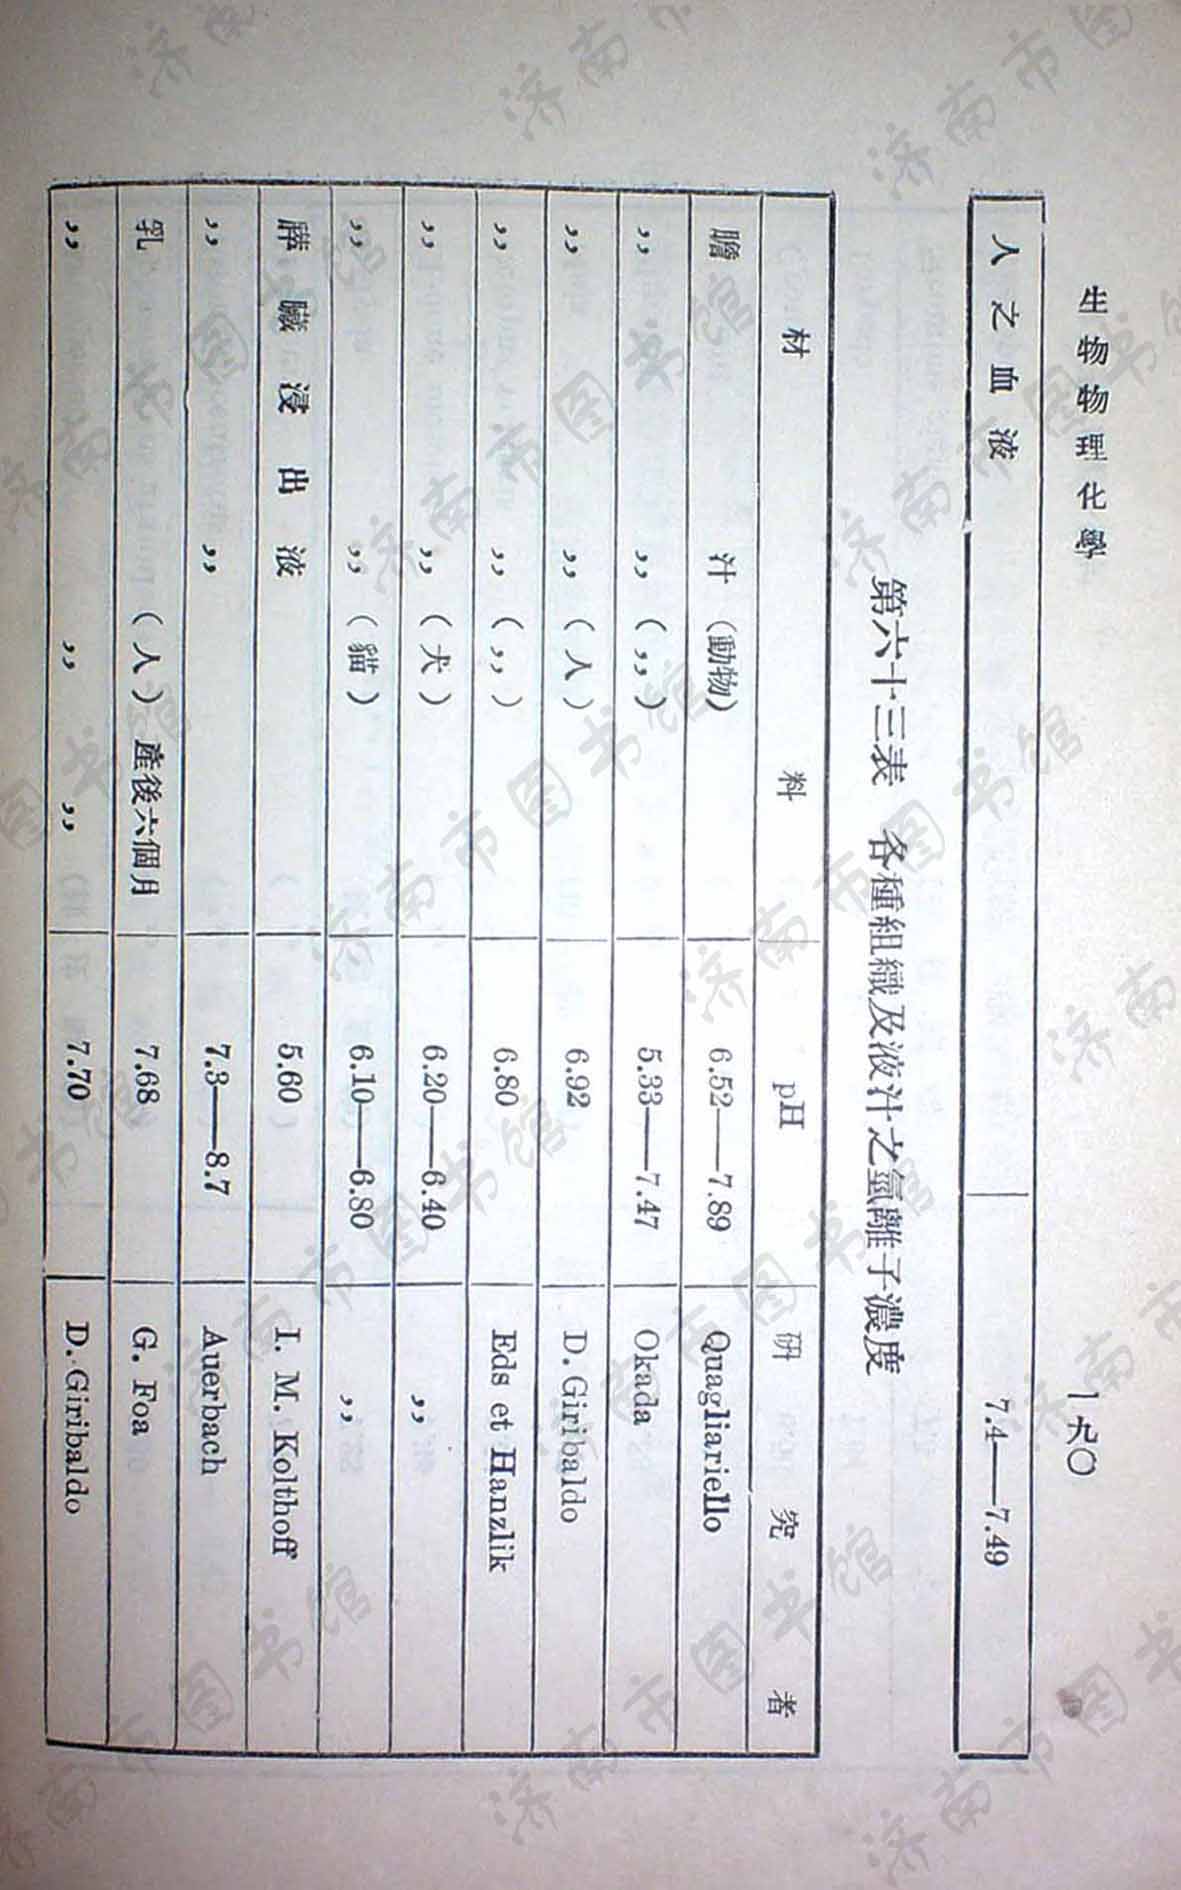 生物物理化學
一九〇
人之血液 7.4——7.49
第六十三表 各種組織及液汁之氫離子濃度
材料 pH 研究者
膽汁(動物) 6.52——7.89 Quagliariello
,, ,,(,,) 5.33——7.47 Okada
,, ,,(人) 6.92 D. Giribaldo
,, ,,(,,) 6.80 Eds et Hanzlik
,, ,,(犬) 6.20——6.40 ,,
,, ,,(貓) 6.10——6.80 ,,
膵臟浸出液 5.60 I. M. Kolthoff
,, ,, 7.3——8.7 Auerbach
乳(人)產後六個月 7.68 G. Foa
,, ,, ,, 7.70 D. Giribaldo
济南市图书馆